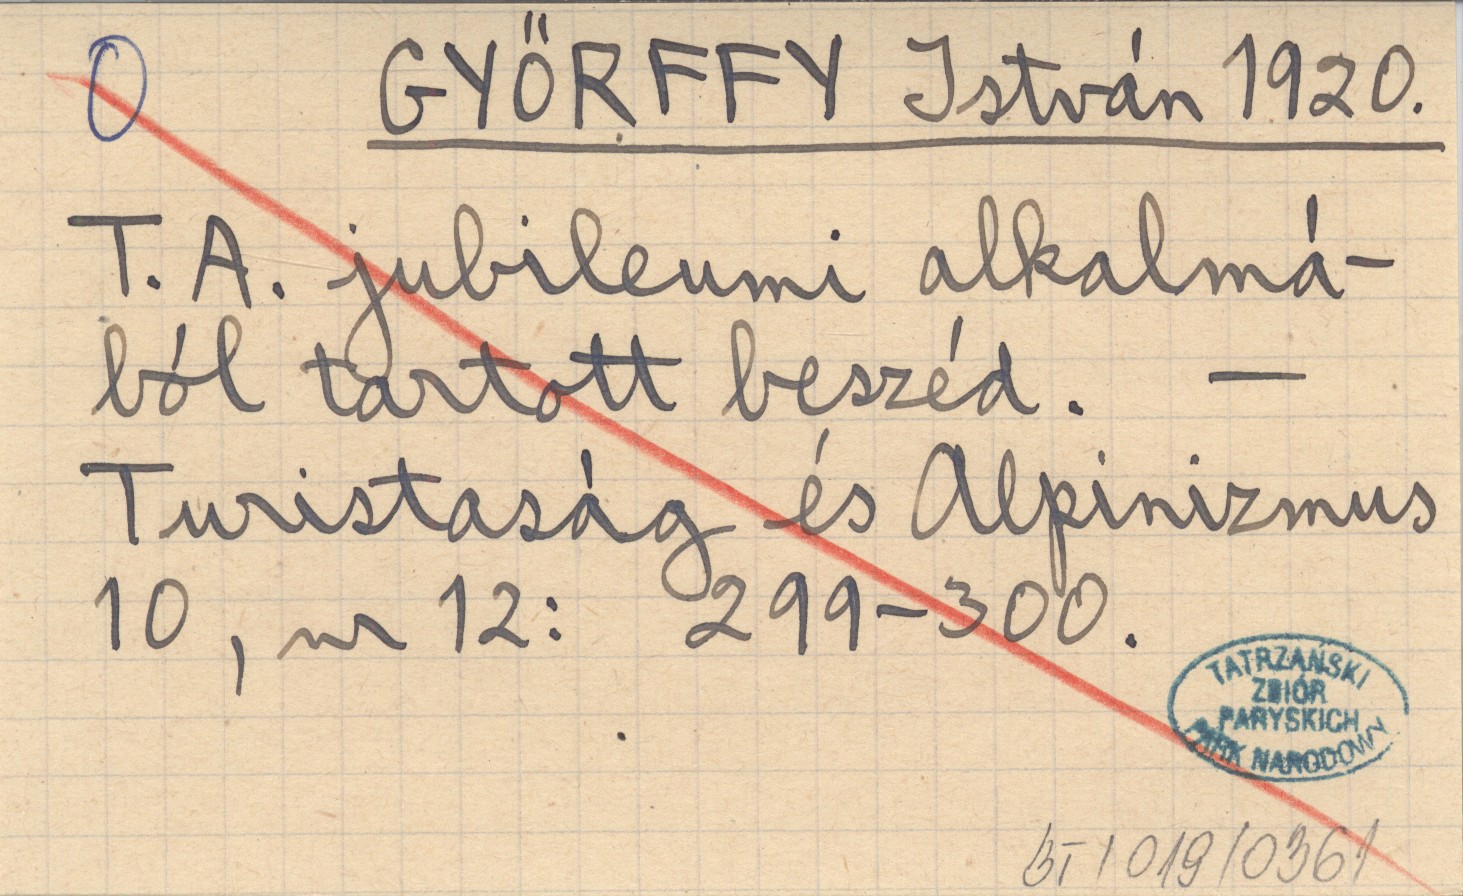 O GYŐRFFY István 1920.
T. A. jubileumi alkalmá-
ból tartott beszéd. —
Turistaság és Alpinizmus
10, nr 12: 299-300.
TATRZAŃSKI
ZBIÓR
PARYSKICH
PARK NARODOWY
BT/019/0361